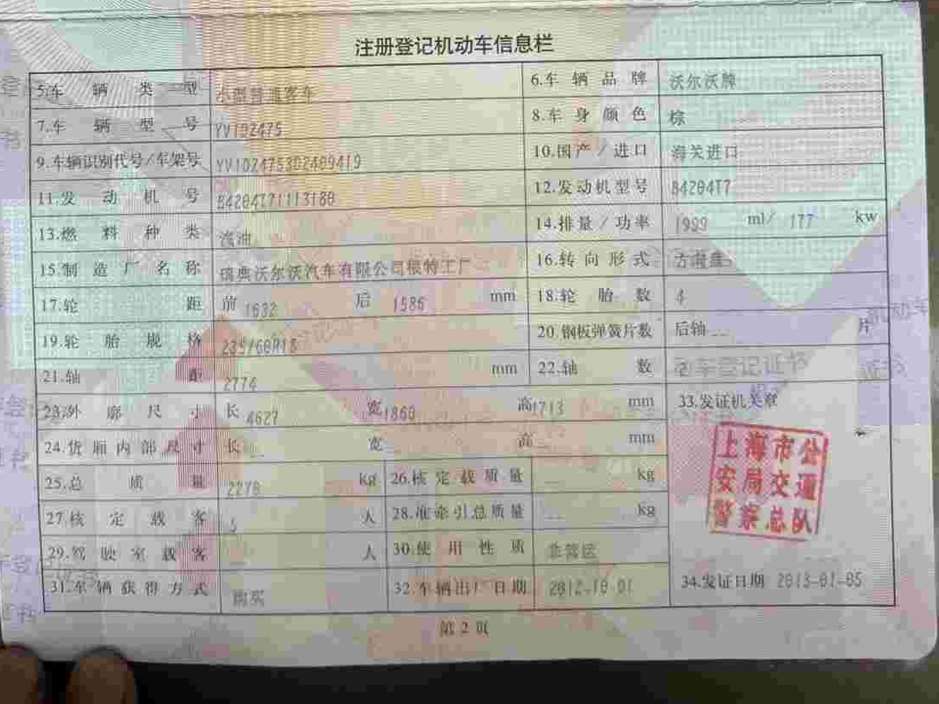 注册登记机动车信息栏
5.车辆类型 小型普通客车 6.车辆品牌 沃尔沃牌
7.车辆型号 YV1DZ475 8.车身颜色 棕
9.车辆识别代号/车架号 YV1DZ475302409419 10.国产/进口 海关进口
11.发动机号 B4204T71113180 12.发动机型号 B4204T7
13.燃料种类 汽油 14.排量/功率 1999 ml/ 177 kw
15.制造厂名称 瑞典沃尔沃汽车有限公司根特工厂 16.转向形式 方向盘
17.轮距 前 1632 后 1586 mm 18.轮胎数 4
19.轮胎规格 235/60R18 20.钢板弹簧片数 后轴 片
21.轴距 2774 mm 22.轴数 2
23.外廓尺寸 长 4627 宽 1860 高 1713 mm 33.发证机关章
24.货厢内部尺寸 长 宽 高 mm
上海市公
安局交通
警察总队
25.总质量 2278 kg 26.核定载质量 kg
27.核定载客 5 人 28.准牵引总质量 kg
29.驾驶室载客 人 30.使用性质 非营运
31.车辆获得方式 购买 32.车辆出厂日期 2012-10-01 34.发证日期 2013-01-05
第2页